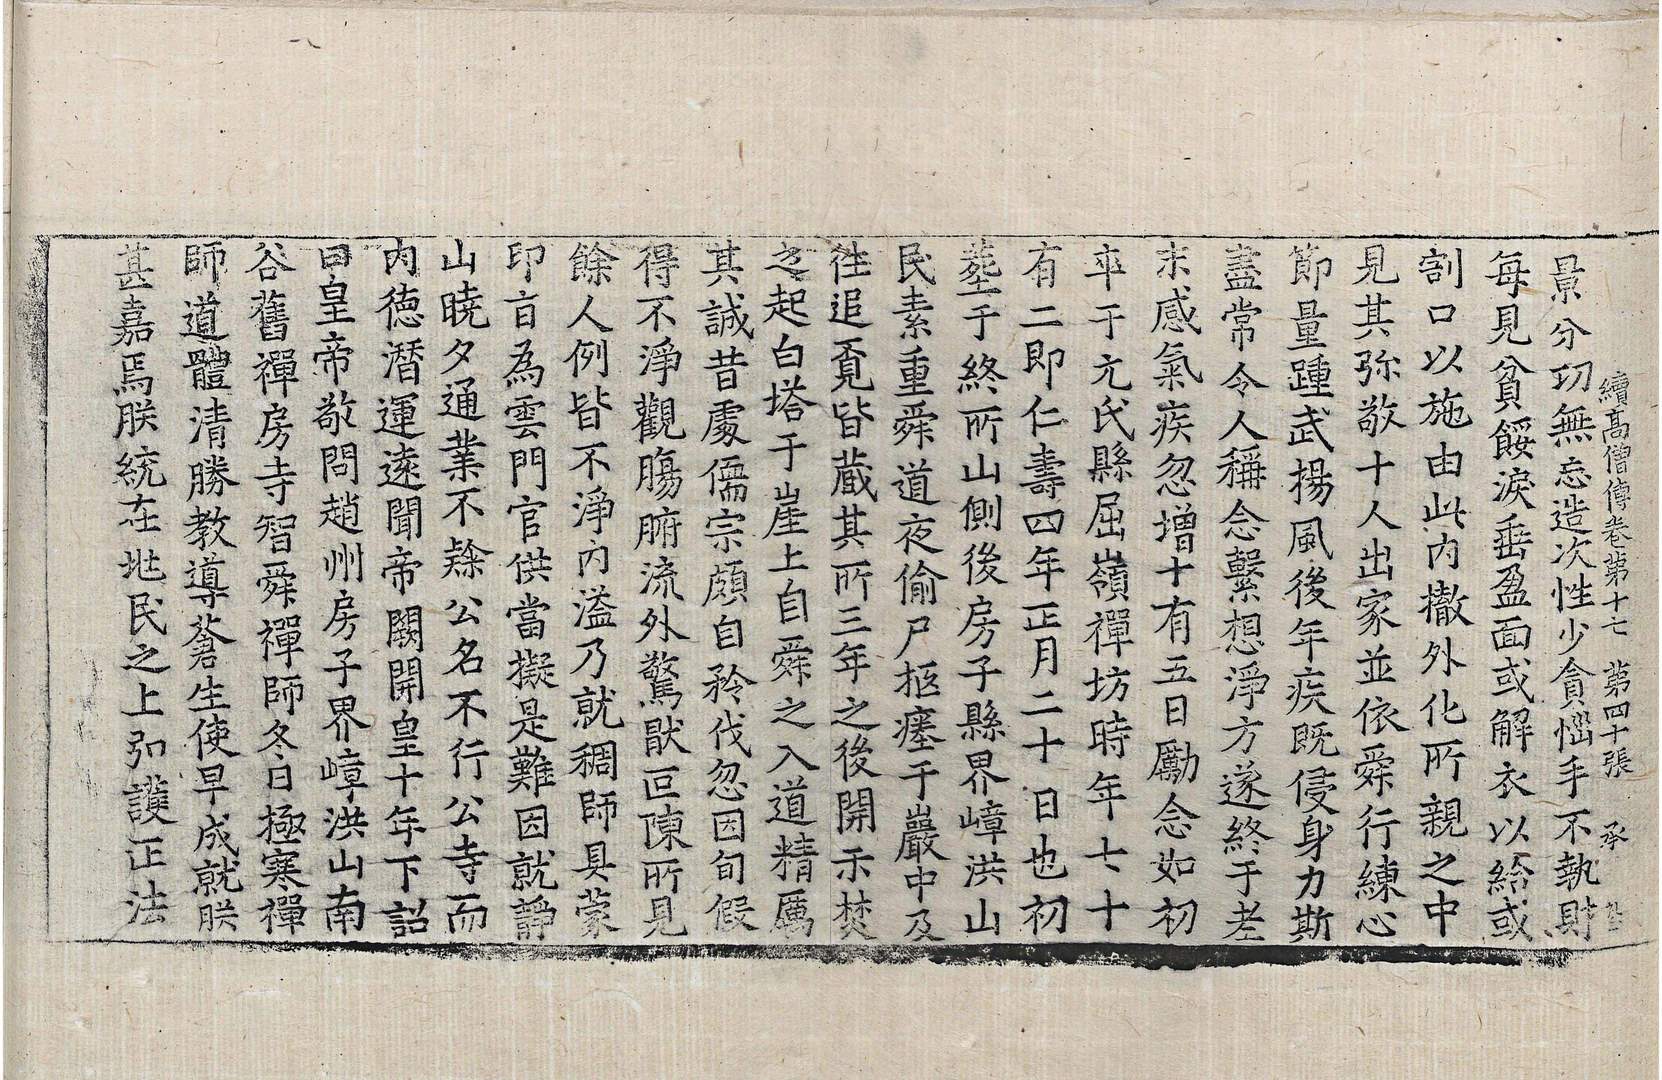 續高僧傳卷第十七 第四十張 承
景分功無忘造次性少貪惱手不執財
每見貧餒淚垂盈面或解衣以給或
割口以施由此內撤外化所親之中
見其弥敬十人出家並依舜行練心
節量踵武揚風後年疾既侵身力斯
盡常令人稱念繫想淨方遂終于老
末感氣疾忽增十有五日勵念如初
卒于元氏縣屈嶺禪坊時年七十
有二即仁壽四年正月二十日也初
葬于終所山側後房子縣界嶂洪山
民素重舜道夜偷尸柩瘞于巖中及
往追覓皆藏其所三年之後開示焚
之起白塔于崖上自舜之入道精厲
其誠昔處儒宗頗自矜伐忽因旬假
得不淨觀膓腑流外驚猒叵陳所見
餘人例皆不淨內溢乃就稠師具蒙
印旨為雲門官供當擬是難因就靜
山曉夕通業不隸公名不行公寺而
內德潛運遠聞帝闕開皇十年下詔
曰皇帝敬問趙州房子界嶂洪山南
谷舊禪房寺智舜禪師冬日極寒禪
師道體清勝教導蒼生使早成就朕
甚嘉焉朕統在地民之上弘護正法